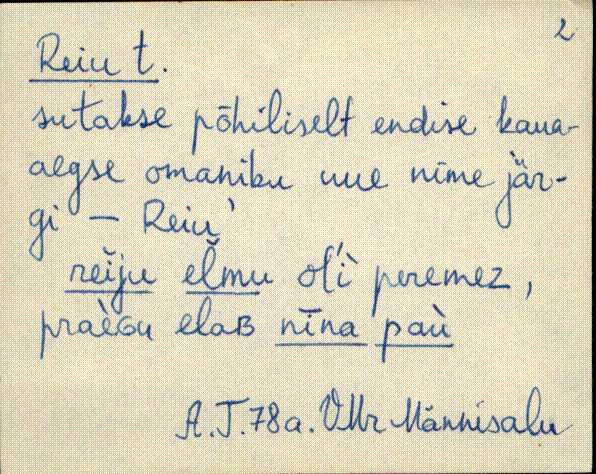 2
Reiu t.
sutakse põhiliselt endise kaua-
aegse omaniku uue nime jär-
gi — Reiu'
reĭju elmu oĺ̀i peremez,
praèɢu elaʙ nīna paù
A.T.78a. VMr Männisalu